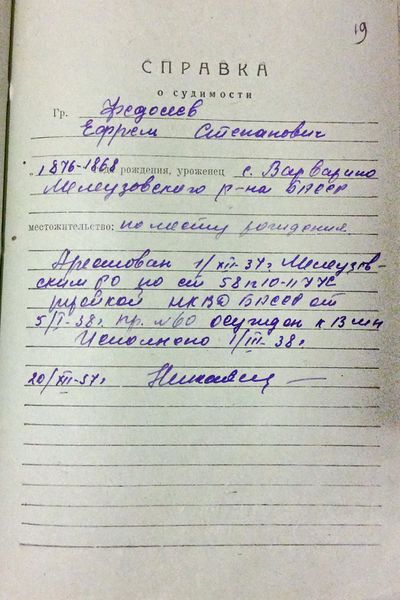 19
СПРАВКА
о судимости
Гр. Федосеев
Ефрем Степанович
1876-1868 рождения, уроженец с. Варварино
Мелеузовского р-на БАССР
местожительство: по месту рождения.
Арестован 1/XII-37г. Мелеузов-
ским РО по ст 58 п 10-11 УК
тройкой НКВД БАССР от
5/I-38г. пр. №60 осужден к ВМН
Исполнено 1/III-38г.
20/XII-57г.